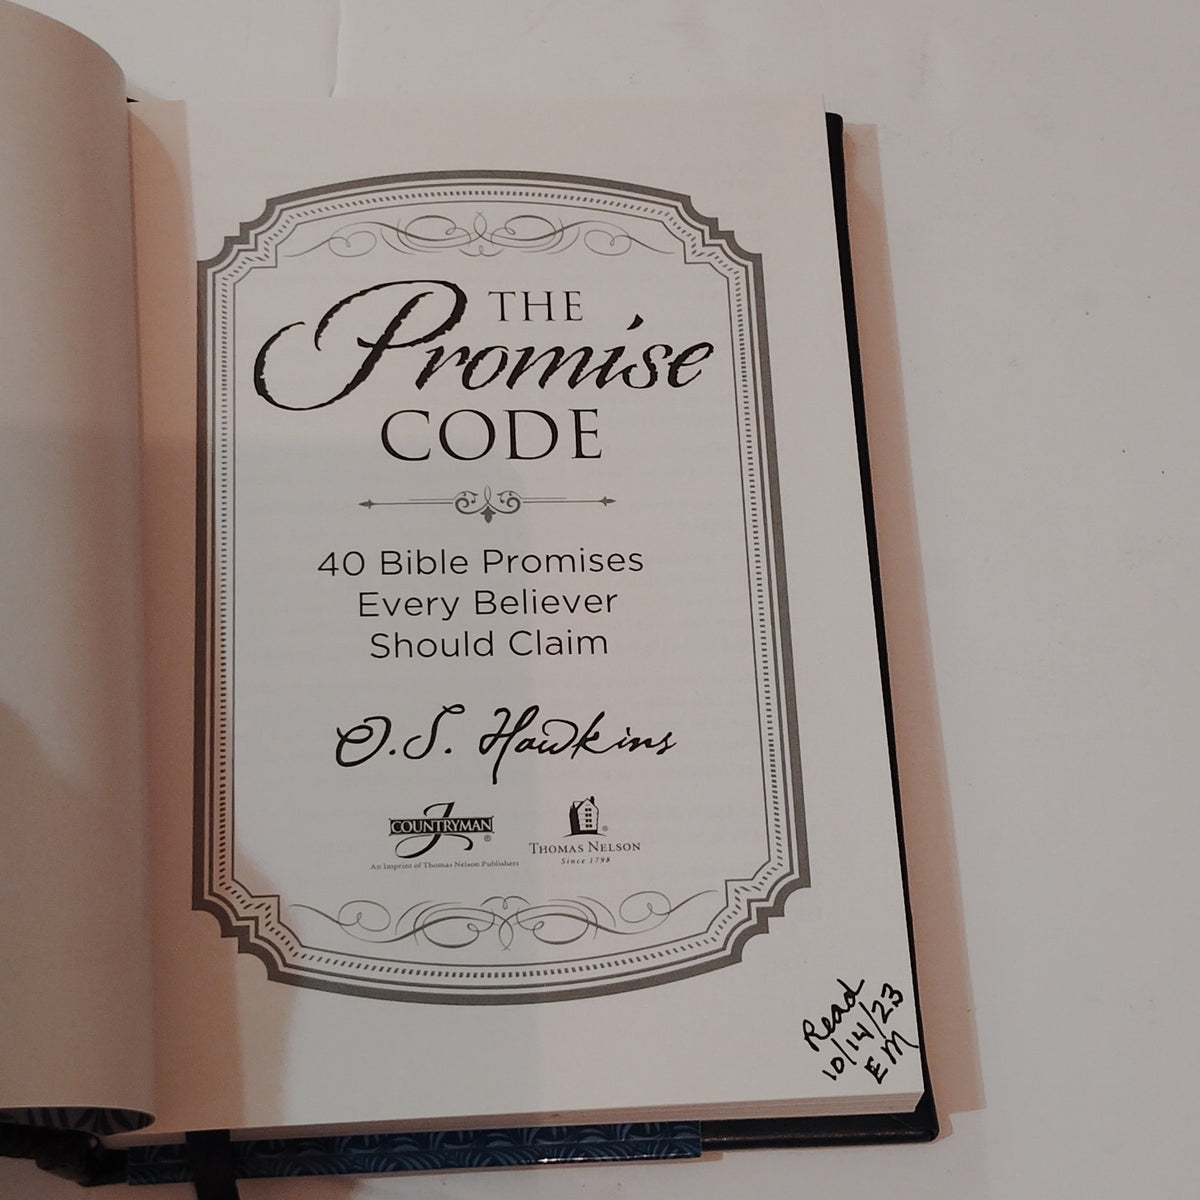 THE
Promise
CODE
40 Bible Promises
Every Believer
Should Claim
O.S. Hawkins
J COUNTRYMAN®
An Imprint of Thomas Nelson Publishers
THOMAS NELSON®
Since 1798
Read
10/14/23
EM